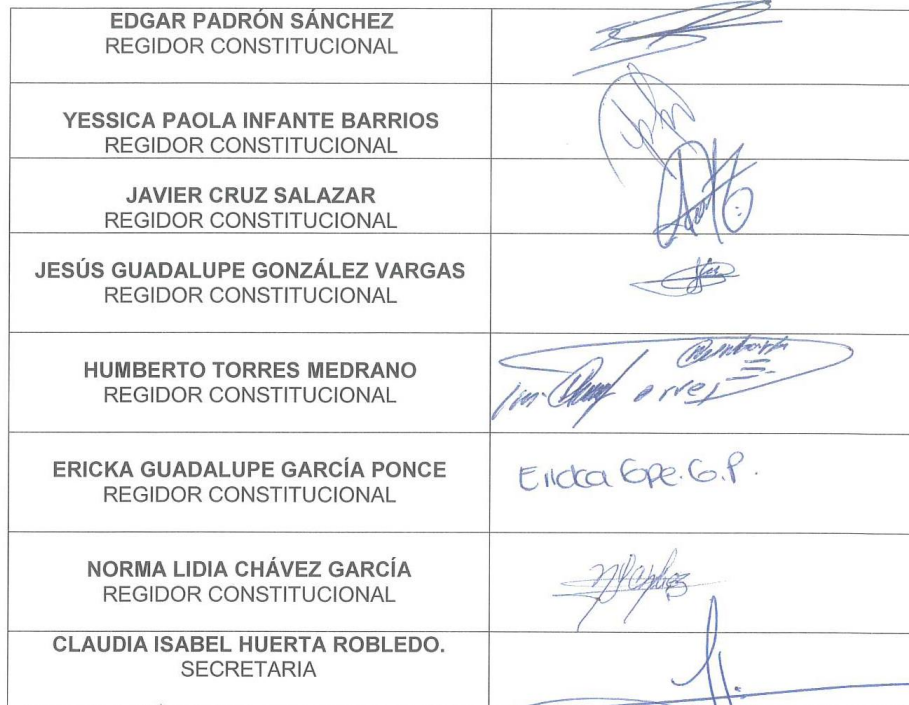 EDGAR PADRÓN SÁNCHEZ
REGIDOR CONSTITUCIONAL
YESSICA PAOLA INFANTE BARRIOS
REGIDOR CONSTITUCIONAL
JAVIER CRUZ SALAZAR
REGIDOR CONSTITUCIONAL
JESÚS GUADALUPE GONZÁLEZ VARGAS
REGIDOR CONSTITUCIONAL
HUMBERTO TORRES MEDRANO
REGIDOR CONSTITUCIONAL
ERICKA GUADALUPE GARCÍA PONCE
REGIDOR CONSTITUCIONAL
Ericka Gpe. G.P.
NORMA LIDIA CHÁVEZ GARCÍA
REGIDOR CONSTITUCIONAL
CLAUDIA ISABEL HUERTA ROBLEDO.
SECRETARIA